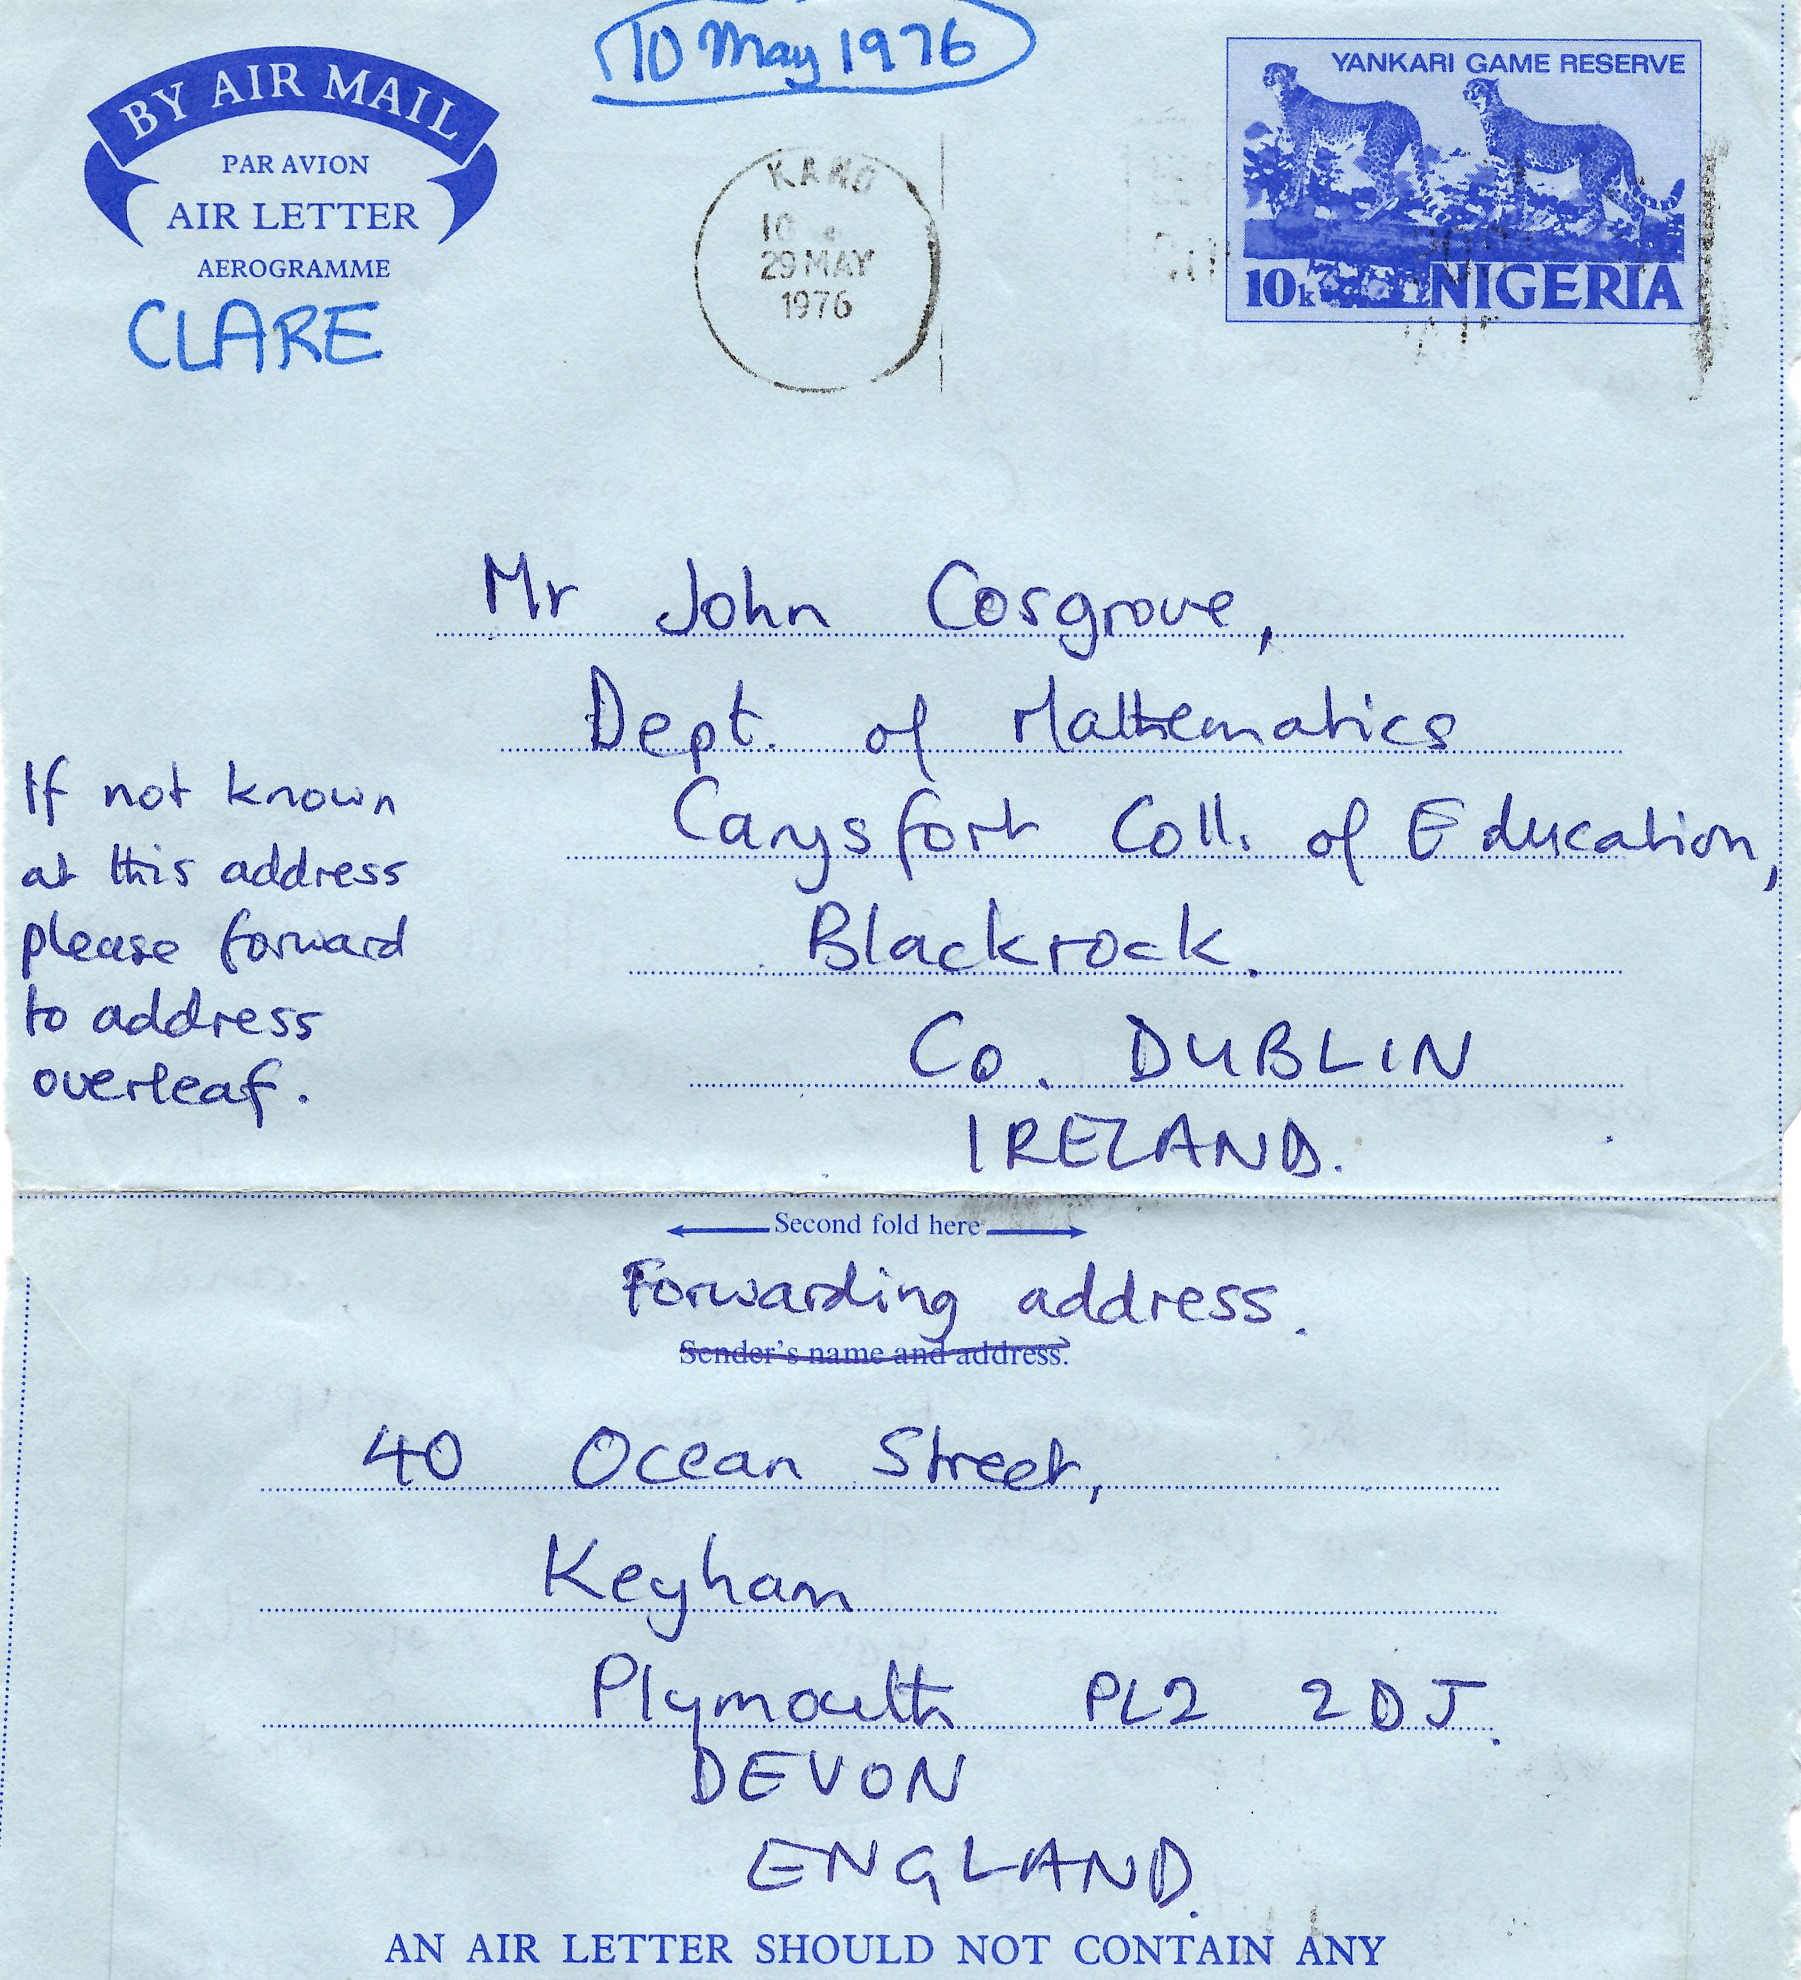 10 May 1976
BY AIR MAIL
PAR AVION
AIR LETTER
AEROGRAMME
CLARE
KANO
10
29 MAY
1976
YANKARI GAME RESERVE
10k NIGERIA
Mr John Cosgrove,
Dept. of Mathematics
Carysfort Coll. of Education,
Blackrock.
Co. DUBLIN
IRELAND.
If not known
at this address
please forward
to address
overleaf.
Second fold here
Forwarding address.
Sender's name and address.
40 Ocean Street,
Keyham
Plymouth PL2 2DJ.
DEVON
ENGLAND.
AN AIR LETTER SHOULD NOT CONTAIN ANY